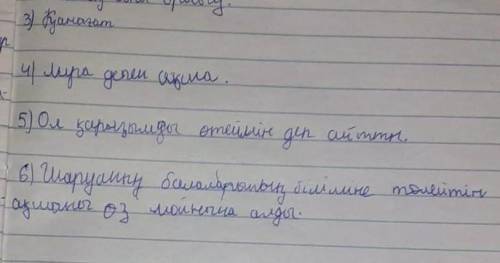 3) Қанағат
4) Мұра деген ақша.
5) Ол қарызымды өтеймін деп айтты.
6) Шаруаның балаларының біліміне төлейтін
ақшаны өз мойнына алды.